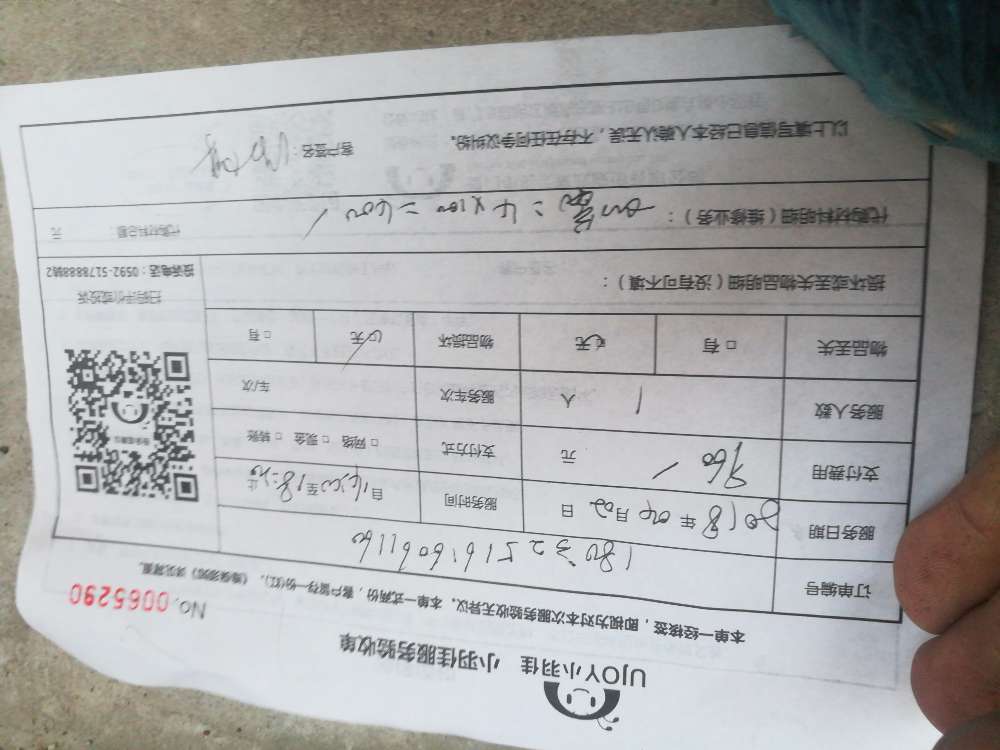 UJOY小羽佳 小羽佳服务验收单
No. 0065290
本单一经核签，即视为对本次服务验收无异议。本单一式两份，客户留存一份(红)，《维保须知》详见背面。
订单编号 1803251616061160
服务日期 2018年04月02日 服务时间 自14:00至18:20止
支付费用 960 元 支付方式 □网络 □现金 □转账
服务人数 1 人 服务车次 车/次
物品丢失 □有 □无 物品损坏 □无 □有
损坏或丢失物品明细（没有可不填）：
扫码评价或投诉
投诉电话：0592-5178888转2
代购材料明细（维修业务）： =4×100=400 代购材料总额： 元
以上填写信息已经本人确认无误，不存在任何争议纠纷。 客户签名：